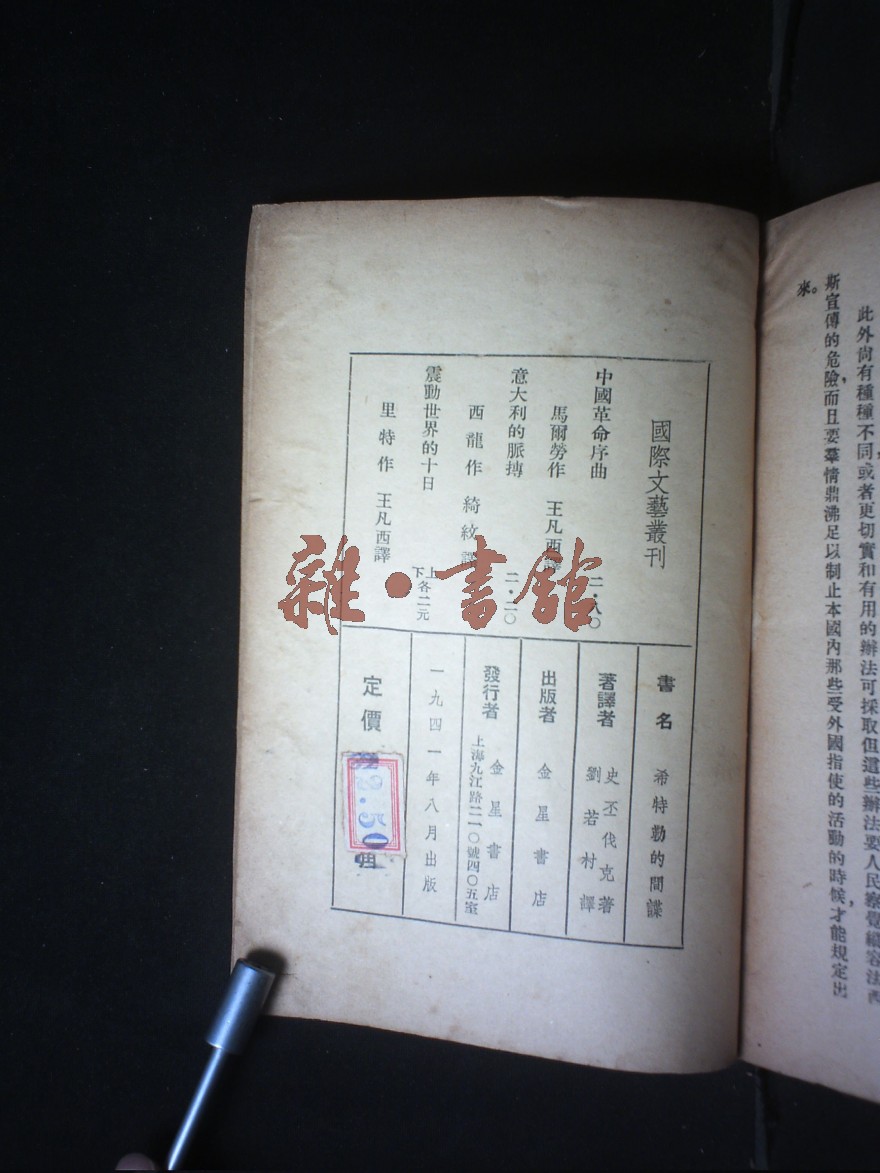 此外尚有種種不同或者更切實和有用的辦法可採取但這些辦法要人民察覺
斯宣傳的危險，而且要羣情鼎沸足以制止本國內那些受外國指使的活動的時候，才能規定出
來。
國際文藝叢刊
中國革命序曲
馬爾勞作　王凡西譯
二・八〇
意大利的脈搏
西龍作　綺紋譯
二・二〇
震動世界的十日
里特作　王凡西譯
上下各二元
書名　希特勒的間諜
著譯者　史丕伐克著
劉若村譯
出版者　金星書店
發行者　金星書店
上海九江路二一〇號四〇五室
一九四一年八月出版
定價
2.50
雜・書館